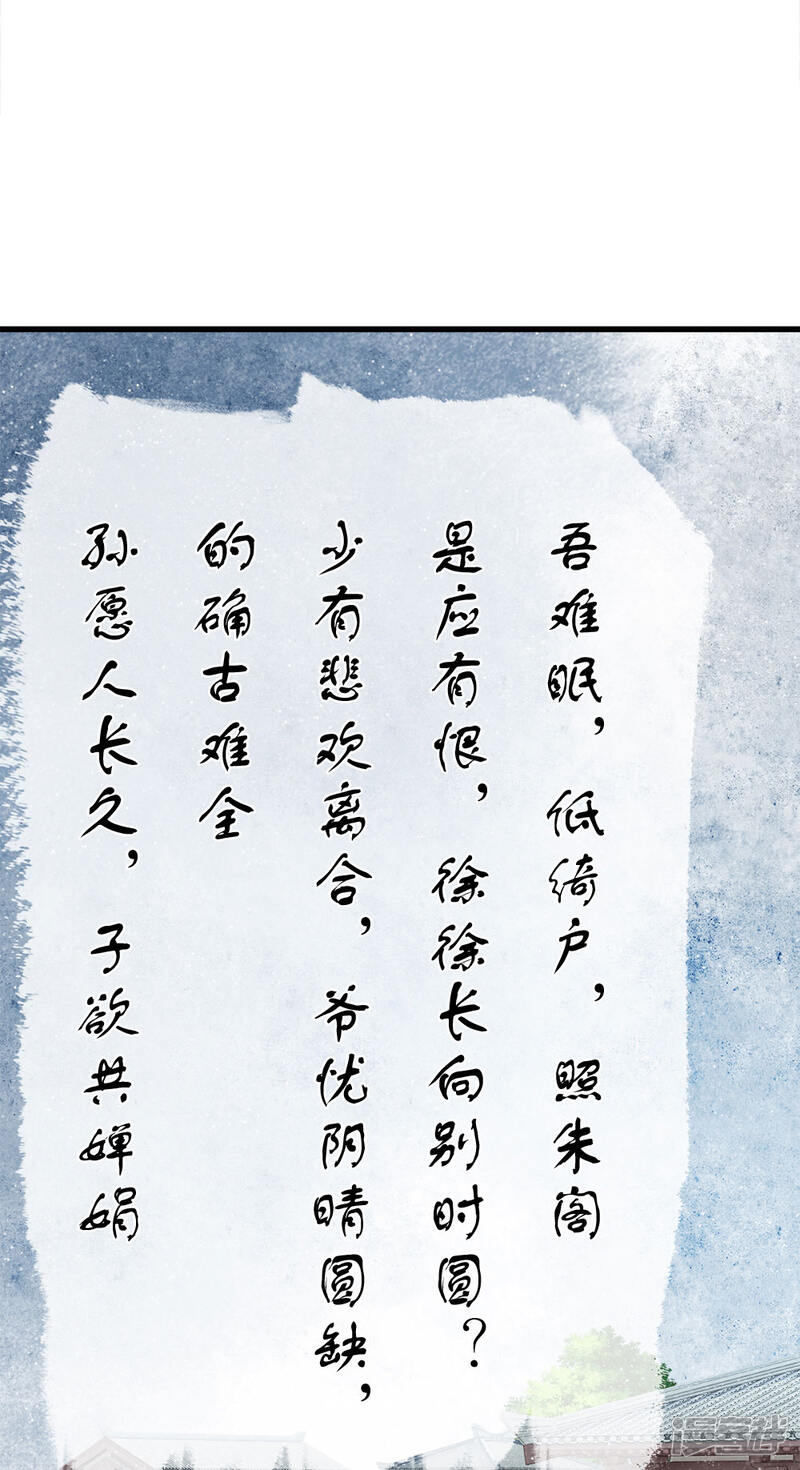 吾难眠，低绮户，照朱阁
是应有恨，徐徐长向别时圆？
少有悲欢离合，爷忧阴晴圆缺，
的确古难全
孙愿人长久，子欲共婵娟
漫客栈